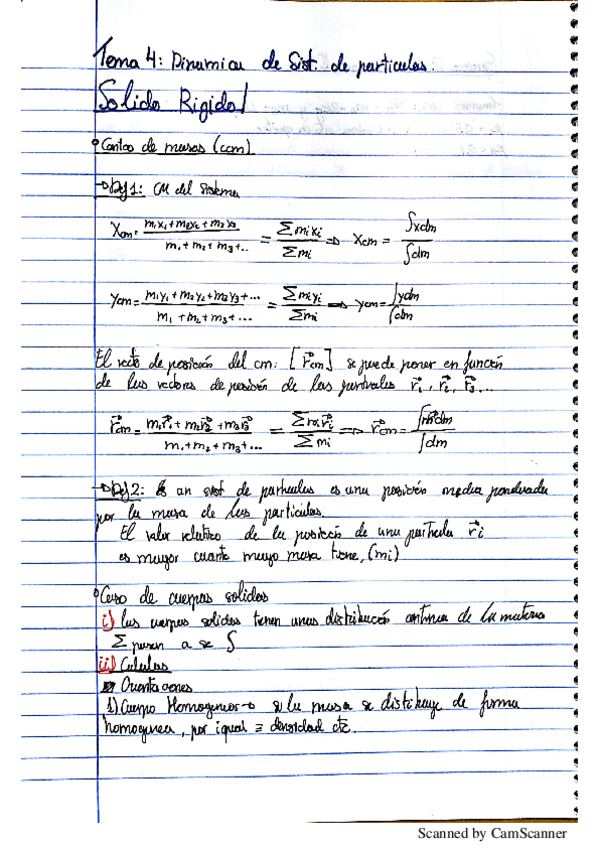 Tema 4: Dinamica de Sist. de particulas.
Solido Rigido
Centro de masas (com)
→ Def 1: CM del sistema
Xcm = m₁x₁+m₂x₂+m₃x₃ / m₁+m₂+m₃+.. = Σmixi / Σmi ⇒ Xcm = ∫xdm / ∫dm
Ycm = m₁y₁+m₂y₂+m₃y₃+... / m₁+m₂+m₃+... = Σmiyi / Σmi ⇒ ycm = ∫ydm / ∫dm
El vector de posición del cm: [r⃗cm] se puede poner en función
de los vectores de posición de las r⃗₁, r⃗₂, r⃗₃,...
r⃗cm = m₁r⃗₁+m₂r⃗₂+m₃r⃗₃ / m₁+m₂+m₃+... = Σmir⃗i / Σmi ⇒ r⃗cm = dm / ∫dm
→ Def 2: an sist de particulas es una posición media ponderada
por la masa de las particulas.
El valor relativo de la posición de una particula r⃗i
es mayor cuanto mayo masa tiene, (mi)
Caso de cuerpos solidos
i) los cuerpos solidos tienen unas distribución continua de la materia
Σ pasan a se ∫
ii) Calculos
1) Cuerpo Homogeneo → si la masa se distribuye de forma
homogenea, por igual ≡ densidad cte.
Scanned by CamScanner